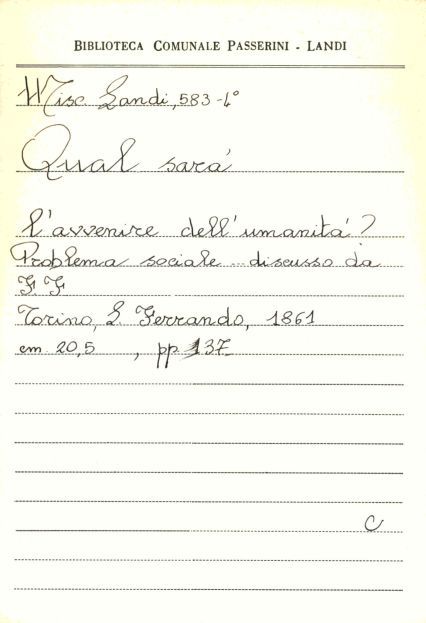 BIBLIOTECA COMUNALE PASSERINI - LANDI
Misc. Landi, 583-4°
Qual sará
l'avvenire dell'umanitá?
Problema sociale ... discusso da
F. F.
Torino, S. Ferrando, 1861
cm 20,5 , pp. 137
C